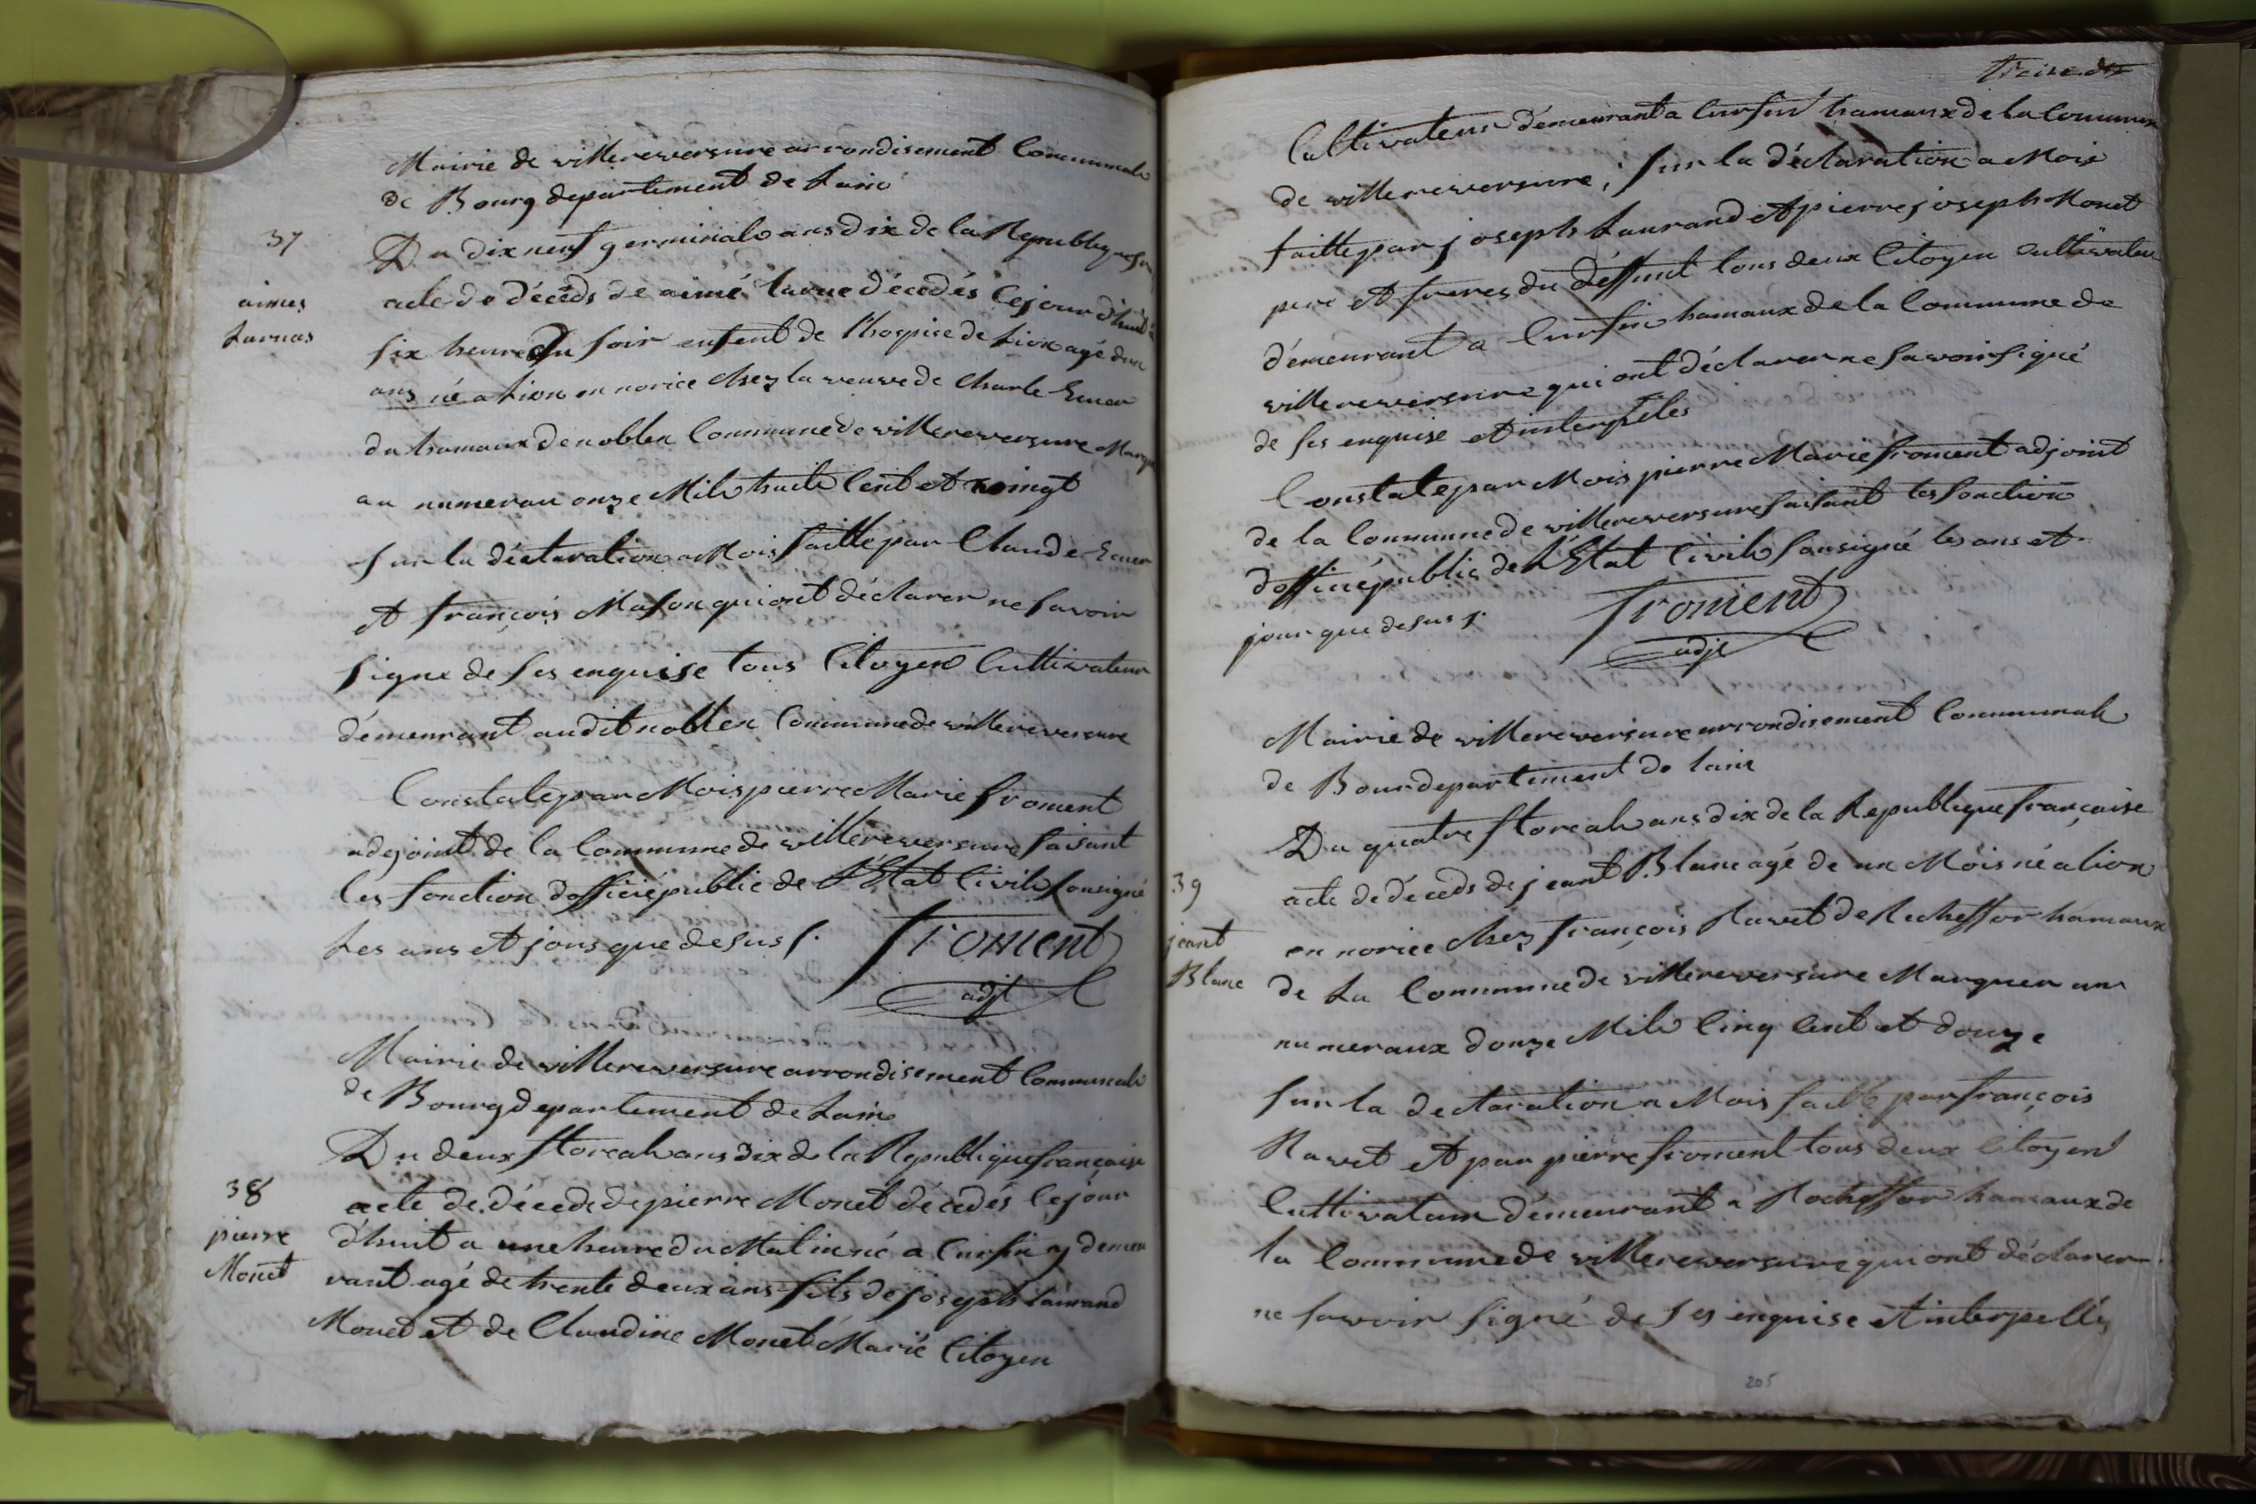 Mairie de villereversure arrondisement Communale
de Bourg departement de Laine
37
Du dix neuf germinale ans dix de la Republique
aimes
Larnas
acte de décéds de aimé décédés Cejourd'huit
six heure du soir enfent de l'hospice de Lion agé dun
ans né a Lion en norice chez la veuve de Charle
du hamaux de noblen Commune de villereversure
au numerau onze Mile huite Cent et vingt
sur la déclaration a Mois faitte par Claude
et françois Mason qui ont déclarer ne savoir
signe de ses enquise tous Citoyen Cultivateur
démeurant audit noblen Commune de villereversure
Constate par Mois pierre Marie froment
adejoint de la Commune de villereversure faisant
les fonction dofficié public de L'Etat Civile sousigné
Les ans et jours que desus f.
froment
adjt
Mairie de villereversure arrondisement Communale
de Bourg departement de Laine
Du deux floreale ans dix de la Republique française
38
pierre
Monet
acte de décede de pierre Monet décédés Cejour
d'huit a une heure du Matin né a Cursin y demeu
rant agé de trente deux ans fils de joseph laurand
Monet et de Claudine Monet Marié Citoyen
treise
Cultivateur démeurant a Cursin hamaux de la Commune
de villereversure; sur la déclaration a Mois
faitte par joseph Laurand et pierre joseph Monet
pere et freres du déffunt tous deux Citoyen cultivateur
démeurant a Cursin hamaux de la Commune de
villereversure qui ont déclarer ne savoir signé
de ses enquise et interpéles
Constate par Mois pierre Marie froment adjoint
de la Commune de villereversure faisant les fonction
dofficié public de L'Etat Civile sousigné les ans et
jour que desus f.
froment
adjt
Mairie de villereversure arrondisement Communale
de Bour departement de laine
Du quatre floreale ans dix de la Republique française
39
jeant
Blanc
acte de décéds de jeant Blanc agé de un Mois né a lion
en norice chez françois Ravet de Rocheffor hamaux
de La Commune de villereversure Marquer au
numeraux douze Mile Cinq Cent et douze
sur la declaration a Mois faitte par françois
Ravet et par pierre froment tous deux Citoyent
Cultivateur démeurant a Rocheffor hamaux de
la Commune de villereversure qui ont déclarer
ne savoir signé de ses enquise et interpellés
205